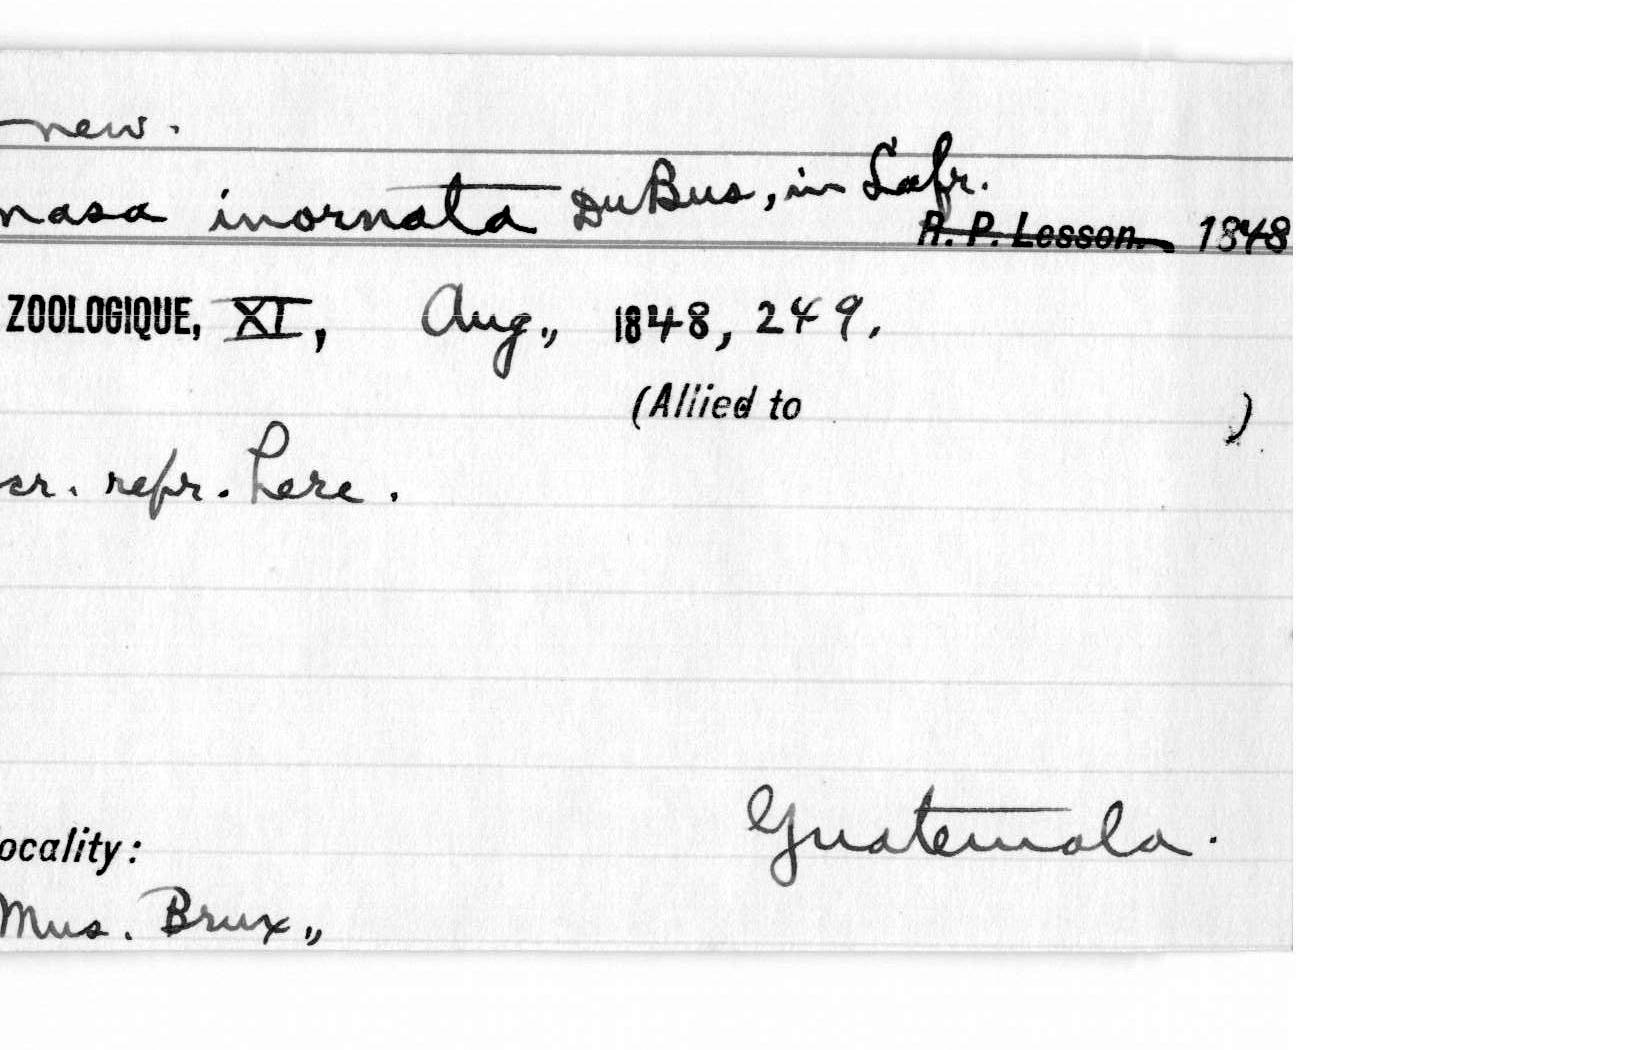 new.
nasa inornata DuBus, in Lafr.
R. P. Lesson. 1848
ZOOLOGIQUE, XI, Aug., 1848, 249.
(Allied to )
scr. repr. here.
ocality: Guatemala.
Mus. Brux.,